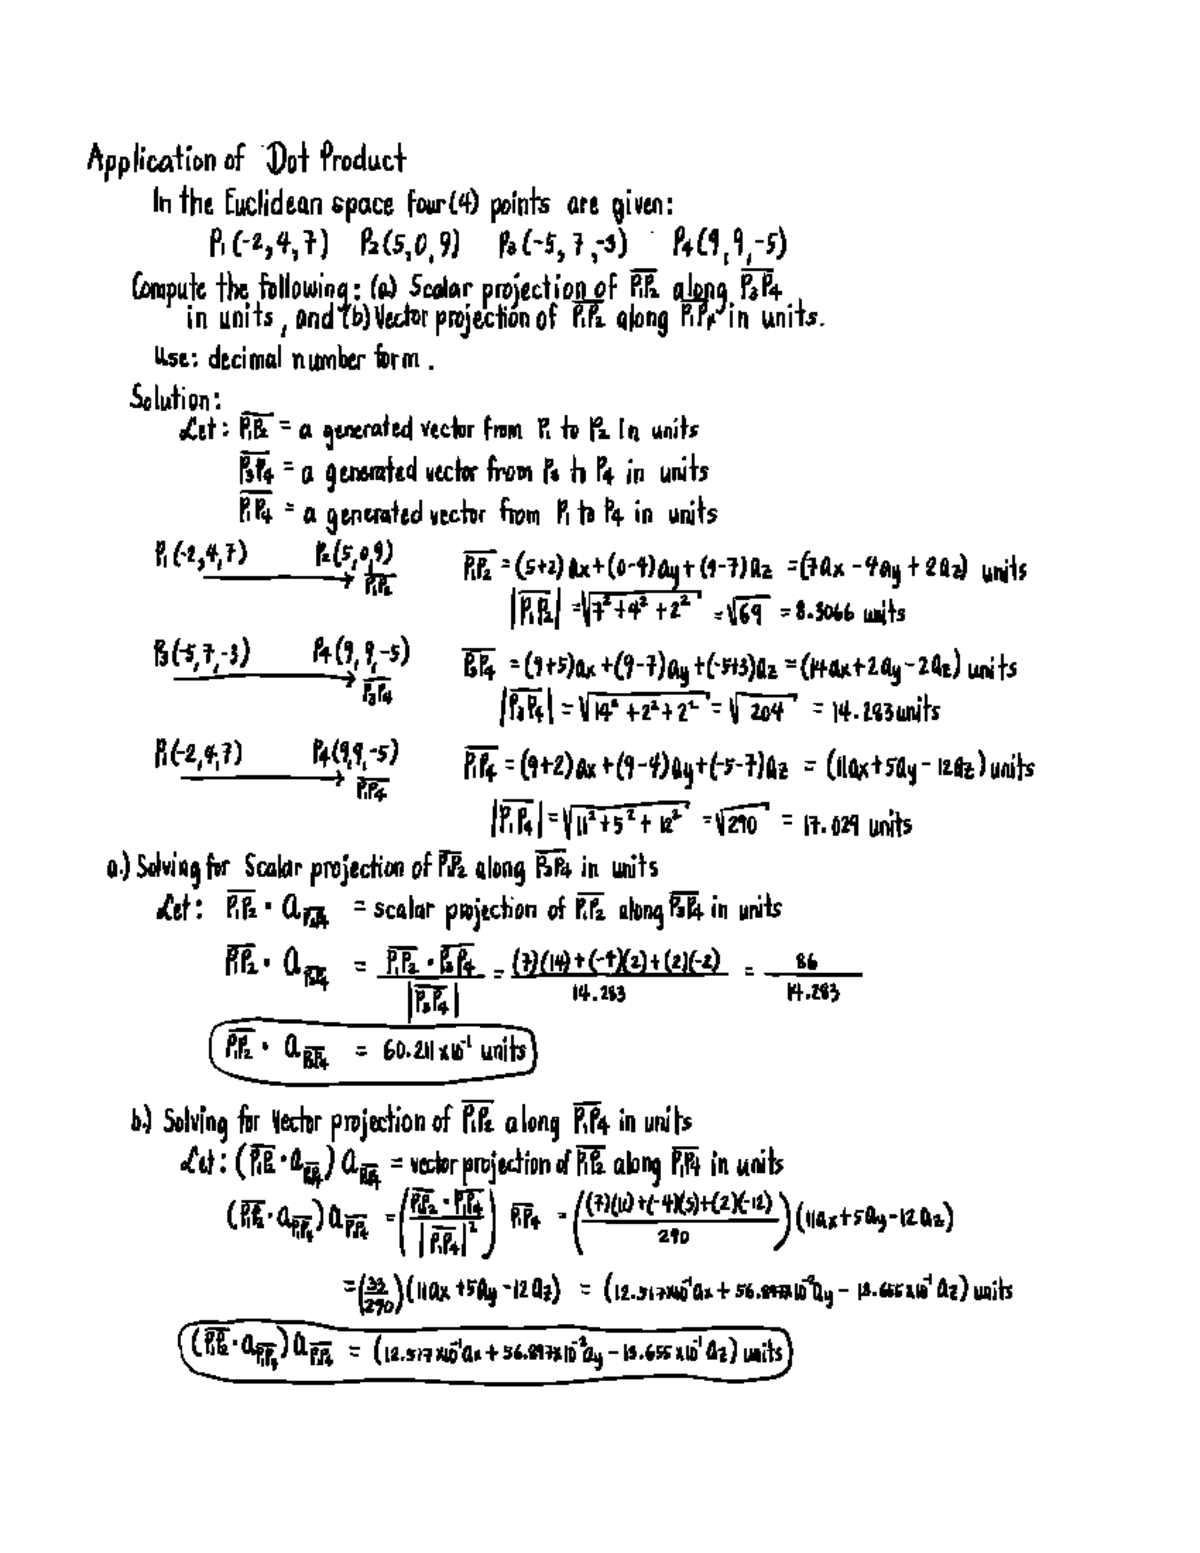 Application of Dot Product
In the Euclidean space four(4) points are given:
P1(-2,4,7) P2(5,0,9) P3(-5,7,-3) P4(9,9,-5)
Compute the following: (a) Scalar projection of P1P2 along P3P4
in units, and (b) Vector projection of P1P2 along P1P4 in units.
Use: decimal number form.
Solution:
Let: P1P2 = a generated vector from P1 to P2 in units
P3P4 = a generated vector from P3 to P4 in units
P1P4 = a generated vector from P1 to P4 in units
P1(-2,4,7) P2(5,0,9) P1P2 = (5+2)ax+(0-4)ay+(9-7)az = (7ax - 4ay + 2az) units
P1P2 |P1P2| = √7²+4²+2² = √69 = 8.3066 units
P3(-5,7,-3) P4(9,9,-5) P3P4 = (9+5)ax+(9-7)ay+(-5+3)az = (14ax+2ay-2az) units
P3P4 |P3P4| = √14²+2²+2² = √204 = 14.283 units
P1(-2,4,7) P4(9,9,-5) P1P4 = (9+2)ax+(9-4)ay+(-5-7)az = (11ax+5ay-12az) units
P1P4 |P1P4| = √11²+5²+12² = √290 = 17.029 units
a.) Solving for Scalar projection of P1P2 along P3P4 in units
Let: P1P2 · aP3P4 = scalar projection of P1P2 along P3P4 in units
P1P2 · aP3P4 = P1P2 · P3P4 / |P3P4| = (7)(14)+(-4)(2)+(2)(-2) / 14.283 = 86 / 14.283
P1P2 · aP3P4 = 60.211x10⁻¹ units
b.) Solving for Vector projection of P1P2 along P1P4 in units
Let: (P1P2 · aP1P4) aP1P4 = vector projection of P1P2 along P1P4 in units
(P1P2 · aP1P4) aP1P4 = (P1P2 · P1P4 / |P1P4|²) P1P4 = ((7)(11)+(-4)(5)+(2)(-12) / 290)(11ax+5ay-12az)
= (33/290)(11ax+5ay-12az) = (12.517x10⁻¹ax + 56.897x10⁻²ay - 13.655x10⁻¹az) units
(P1P2 · aP1P4) aP1P4 = (12.517x10⁻¹ax + 56.897x10⁻²ay - 13.655x10⁻¹az) units